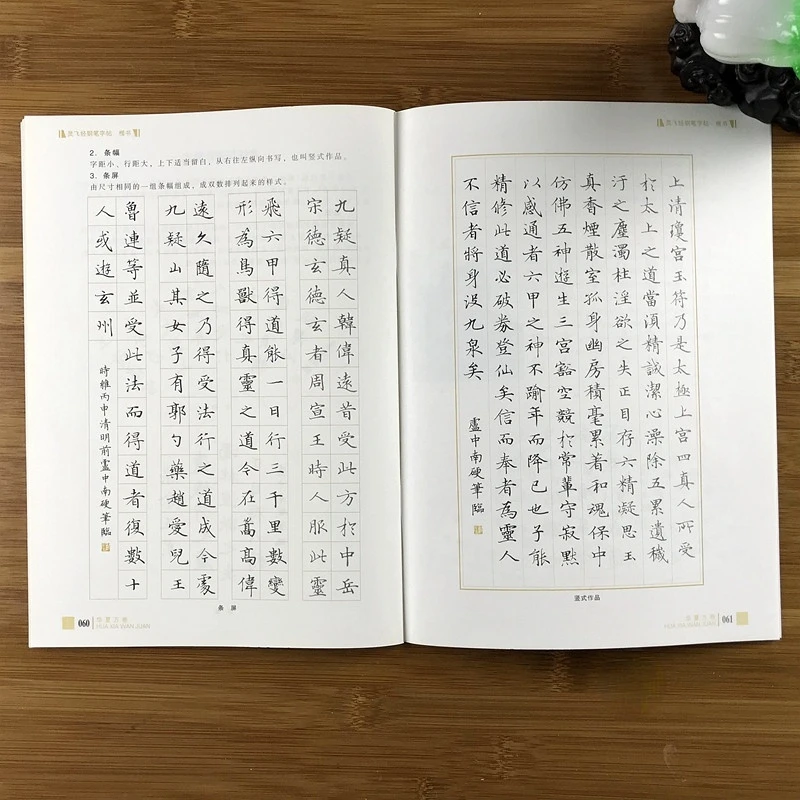 灵飞经钢笔字帖 楷书
2. 条幅
字距小、行距大，上下适当留白，从右往左纵向书写，也叫竖式作品。
3. 条屏
由尺寸相同的一组条幅组成，成双数排列起来的样式。
九疑真人韓偉遠昔受此方於中岳
宋德玄德玄者周宣王時人服此靈
飛六甲得道能一日行三千里數變
形為鳥獸得真靈之道今在嵩高偉
遠久隨之乃得受法行之道成今處
九疑山其女子有郭勺藥趙愛兒王
魯連等並受此法而得道者復數十
人或遊玄州
時維丙申清明前盧中南硬筆臨
条 屏
060
华夏万卷
HUA XIA WAN JUAN
灵飞经钢笔字帖 楷书
上清瓊宮玉符乃是太極上宮四真人所受
於太上之道當須精誠潔心澡除五累遺穢
汙之塵濁杜淫欲之失正目存六精凝思玉
真香煙散室孤身幽房積毫累著和魂保中
仿佛五神遊生三宮豁空競於常輩守寂默
以感通者六甲之神不踰年而降已也子能
精修此道必破券登仙矣信而奉者為靈人
不信者將身沒九泉矣
盧中南硬筆臨
竖式作品
华夏万卷
HUA XIA WAN JUAN
061